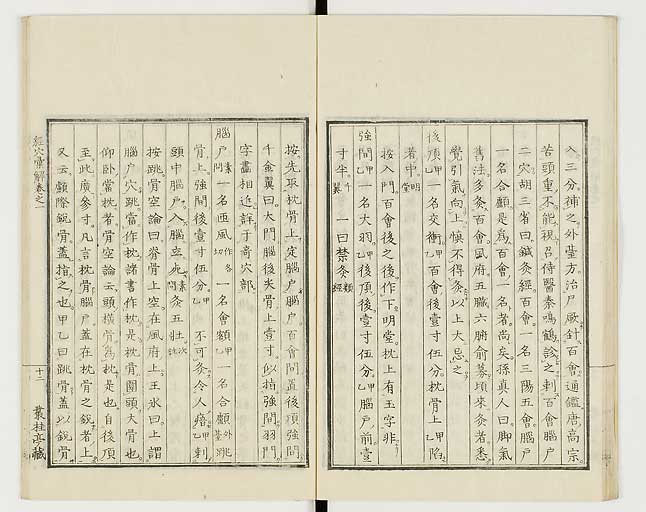 入三分補之外臺方治尸厥針百會通鑑唐高宗
苦頭重不能視召侍醫秦鳴鶴診之刺百會腦戶
二穴胡三省曰鍼灸經百會一名三陽五會腦戶
一名合顱是爲百會一名者尚矣孫真人曰脚氣
舊法多灸百會風府五臟六腑俞募頃來灸者悉
覺引氣向上愼不得灸以上大忌之
後頂甲乙一名交衝甲乙百會後壹寸伍分枕骨上甲乙陷
者中明堂
按入門百會後之後作下明堂枕上有玉字非
強間甲乙一名大羽甲乙後頂後壹寸伍分甲乙腦戶前壹
寸半千翼一曰禁灸類經
按先取枕骨上定腦戶腦戶百會間置後頂強間
千金翼曰大門腦後尖骨上壹寸似指強間羽門
字畫相近詳于奇穴部
腦戶素問一名匝風作各切一名會額甲乙一名合顱外臺跳
骨上強間後壹寸伍分甲乙不可灸令人瘖甲乙刺
頭中腦戶入腦立死素問灸五壯次注
按跳骨空論曰脊骨上空在風府上王氷曰上謂
腦戶穴跳當作枕諸書作枕是枕骨圍頭大骨也
仰卧當枕者骨空論云頭橫骨爲枕是也自後頂
至此廣參寸凡言枕骨腦戶蓋在枕骨之銳者上
又云顱際銳骨蓋指之也甲乙曰跳骨蓋以銳骨
經穴彙解卷之一
十二
叢桂亭藏